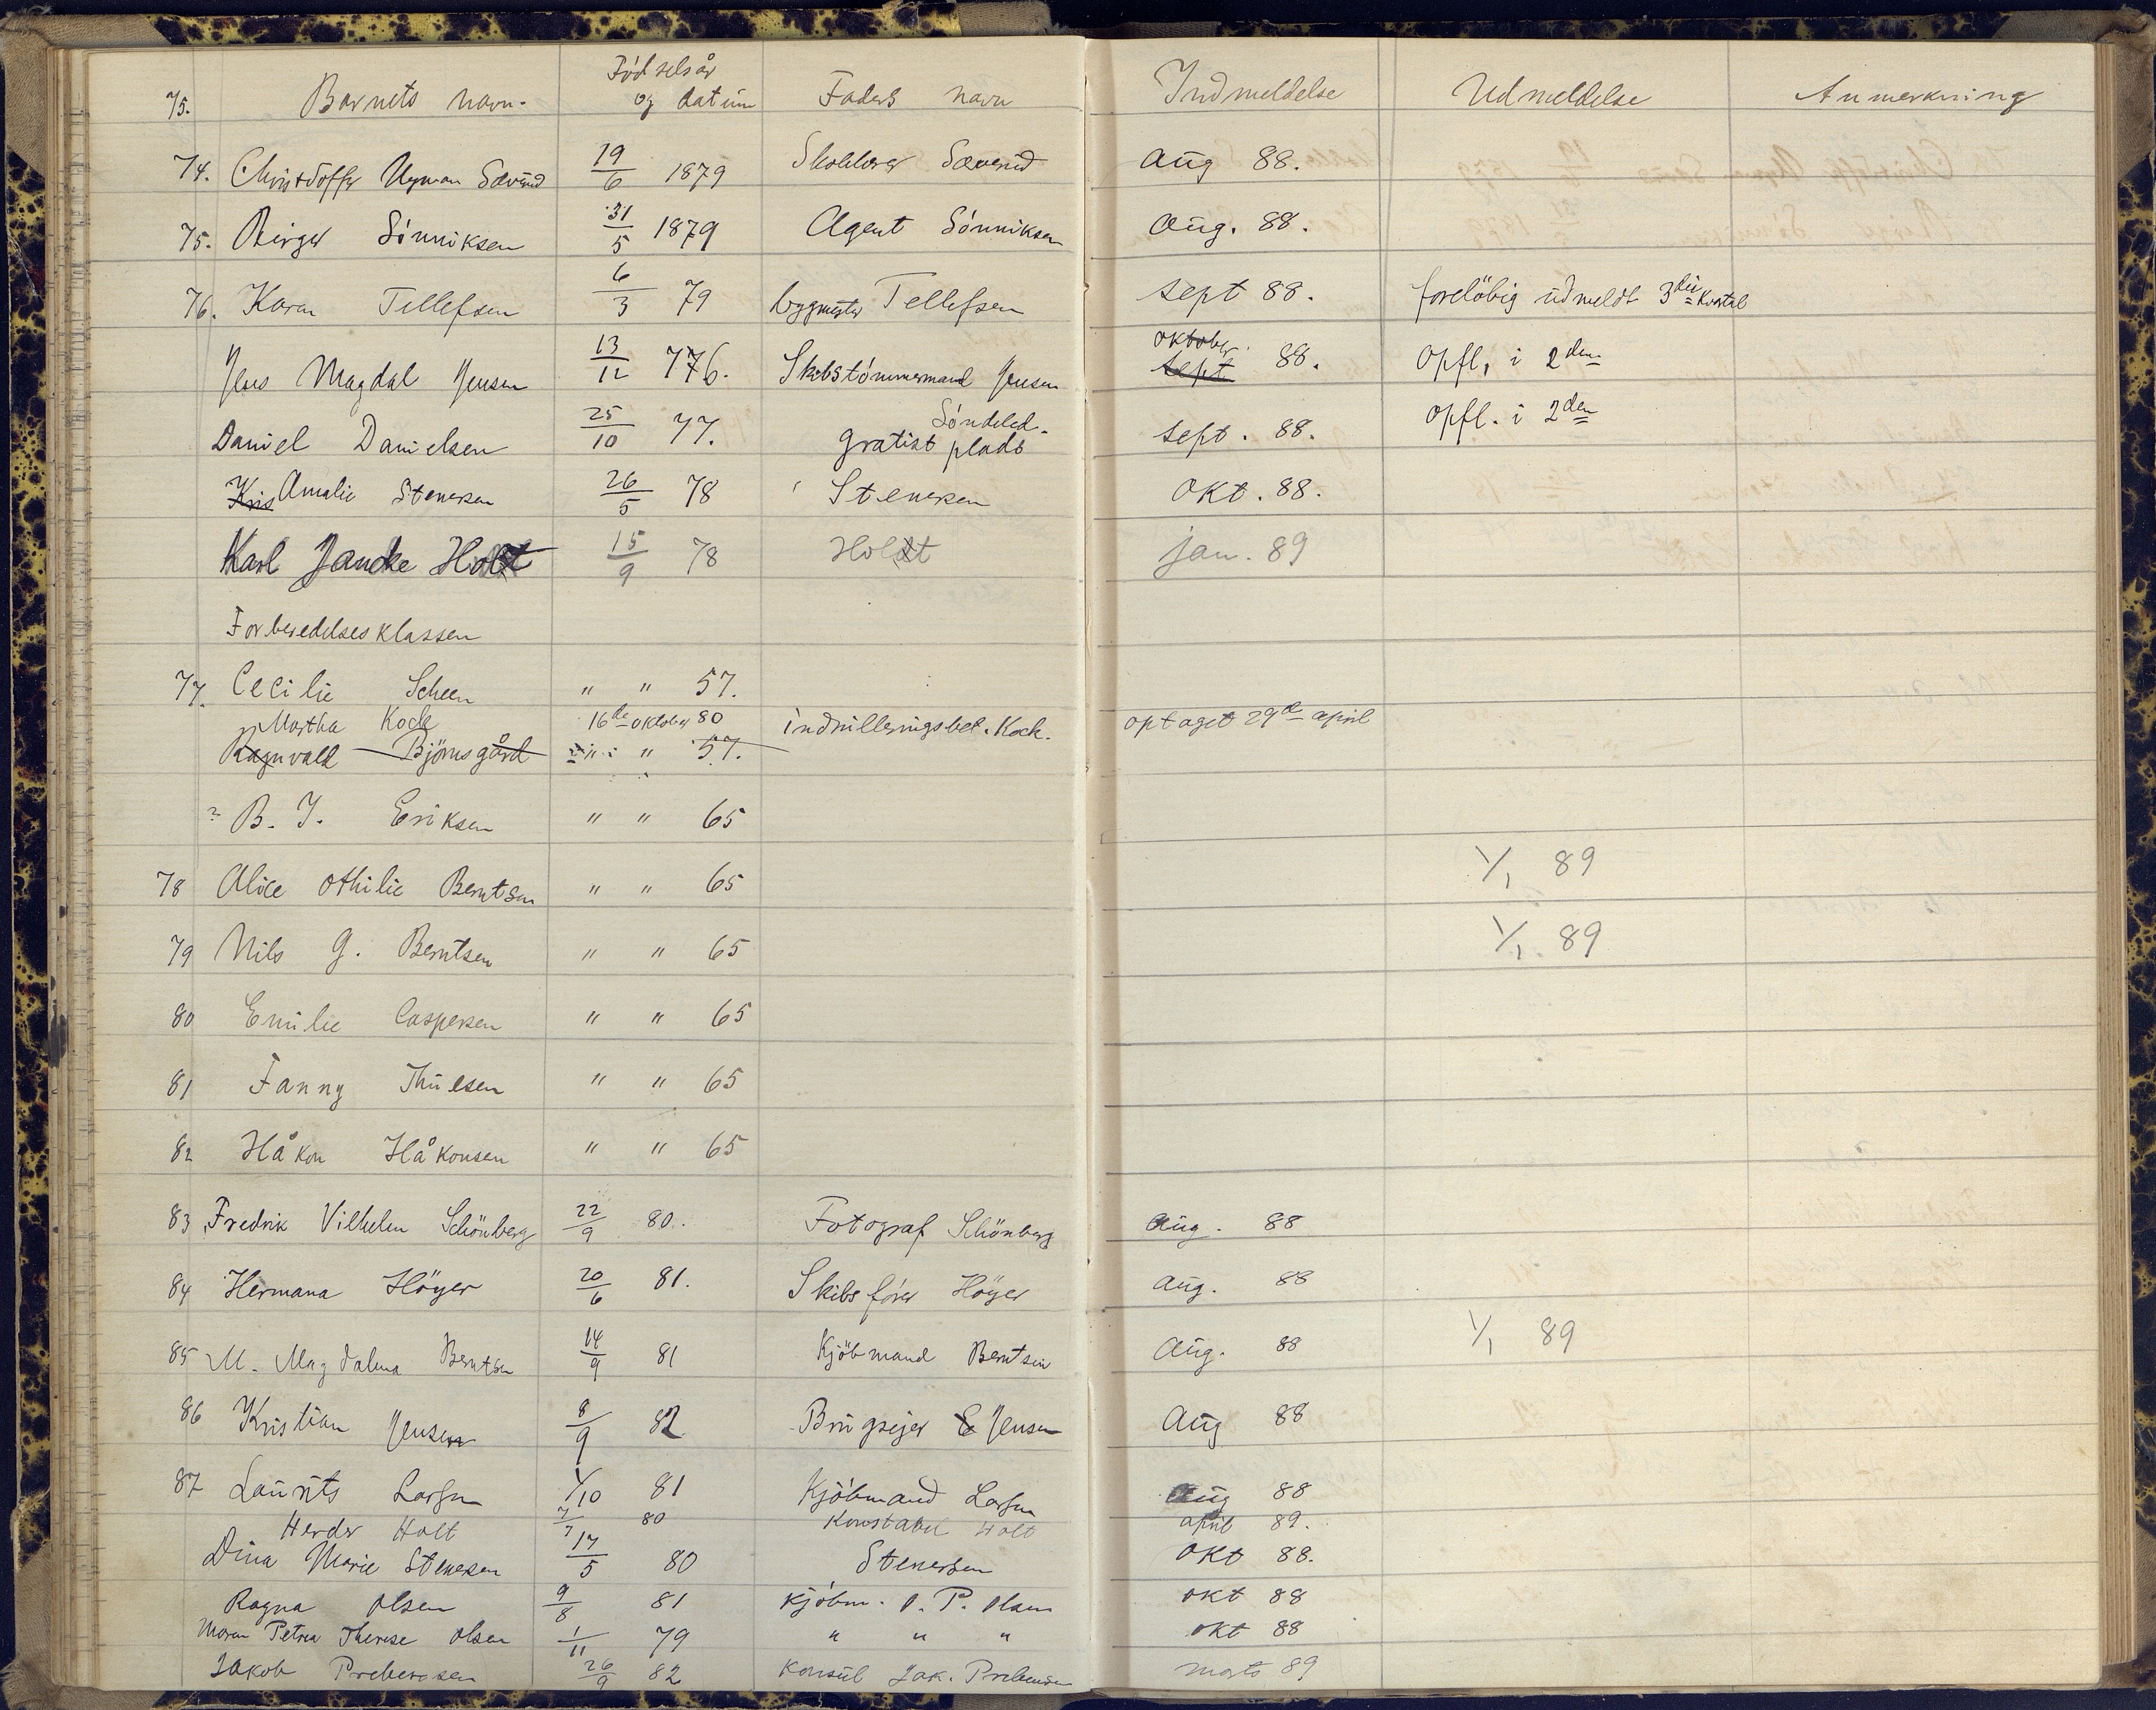 75. Barnets navn. Fødselsår og datum Faders navn Indmeldelse Udmeldelse Anmerkning
74. Christoffer Nyman Sævend 19/6 1879 Skolelærer Sævend Aug 88.
75. Birger Sönniksen 31/5 1879 Agent Sönniksen Aug. 88.
76. Karen Tellefsen 6/3 79 bygmester Tellefsen Sept 88. foreløbig udmeldt 3die Kvartal
Jens Magdal Jensen 13/12 776. Skibstömmermand Jensen oktober sept 88. Opfl, i 2den
Daniel Danielsen 25/10 77. Söndeled. gratist plads sept. 88. Opfl. i 2den
Kris Amalie Stenersen 26/5 78 Stenersen Okt. 88.
Karl Jancke Holt 15/9 78 Holt jan. 89
Forberedelsesklassen
77. Cecilie Scheen " " 57.
Martha Kock 16de oktober 80 indrulleringsbet. Kock. optaget 29de april
Ragnvald Björnsgård " " 57.
? B. J. Eriksen " " 65
78 Alice Othilie Berntsen " " 65 1/1 89
79 Nils G. Berntsen " " 65 1/1 89
80 Emilie Caspersen " " 65
81 Fanny Thulesen " " 65
82 Håkon Håkonsen " " 65
83 Fredrik Vilhelm Schönberg 22/9 80. Fotograf Schönberg Aug. 88
84 Hermana Höyer 20/6 81. Skibsförer Höyer Aug. 88
85 M. Magdalena Berntsen 14/9 81 Kjöbmand Berntsen Aug. 88 1/1 89
86 Kristian Jensen 8/9 82 Brugseier E Jensen Aug 88
87 Lauritz Larsen 1/10 81 Kjöbmand Larsen Aug 88
Herder Holt 7/7 80 Konstabel Holt april 89.
Dina Marie Stenersen 17/5 80 Stenersen Okt 88.
Ragna Olsen 9/8 81 Kjöbm. O. P. Olsen okt 88
Maren Petrea Therese Olsen 1/11 79 " " " okt 88
Jakob Prebensen 26/9 82 Konsul Jak. Prebensen marts 89